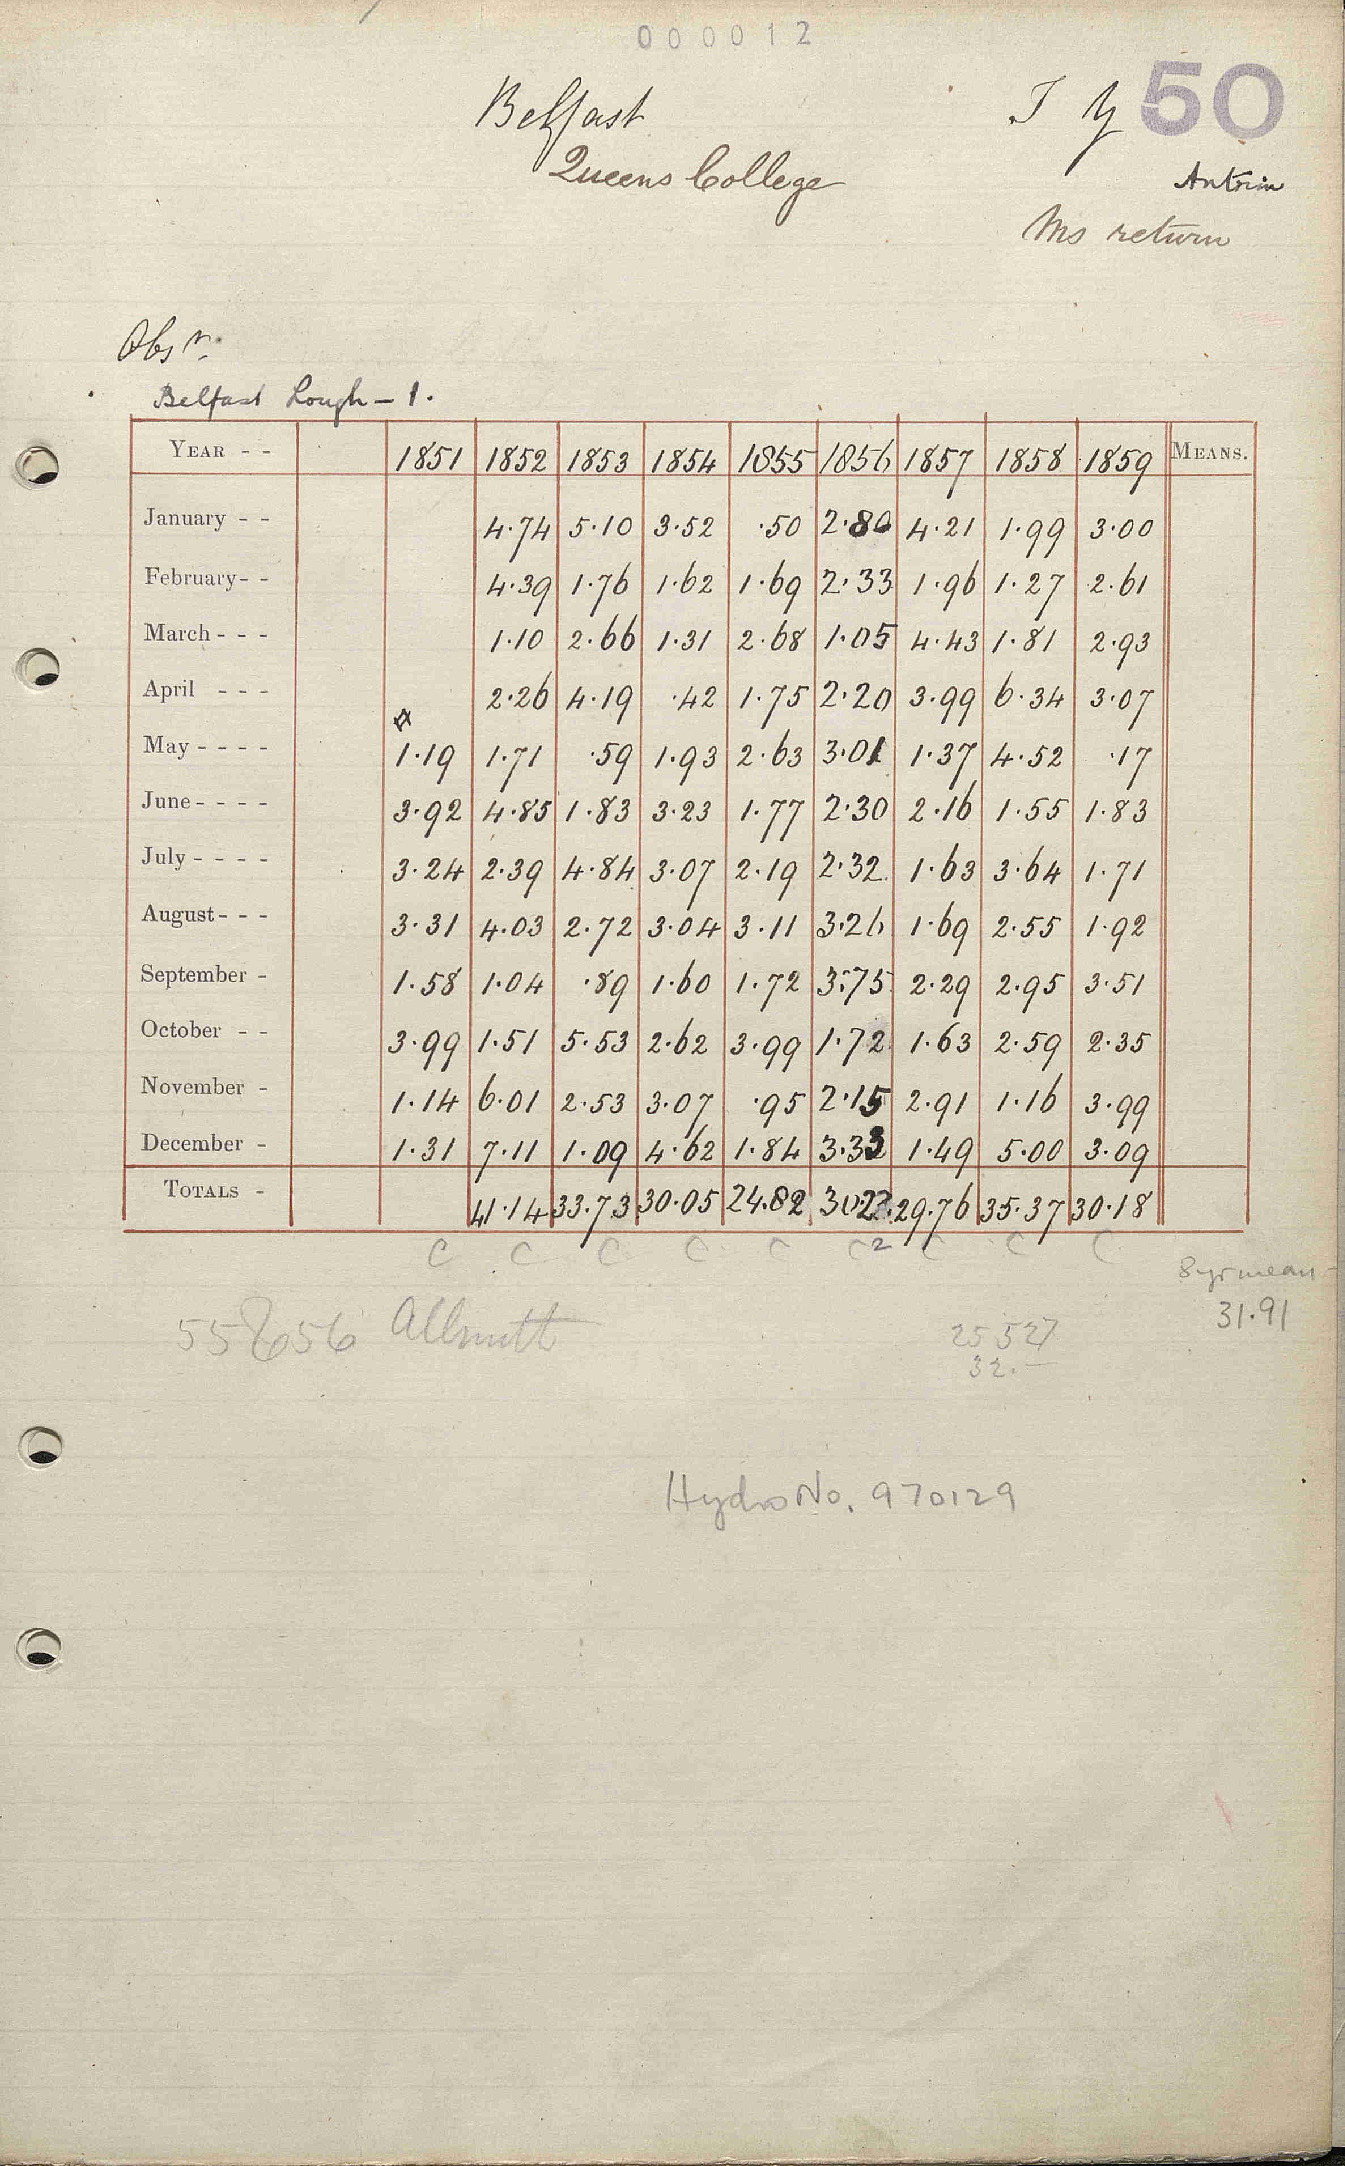 000012
Belfast I Y 50
Queens College Antrim
Ms return
Obsr.
Belfast Lough - 1.
YEAR - - 1851 1852 1853 1854 1855 1856 1857 1858 1859 MEANS.
January - - 4.74 5.10 3.52 .50 2.80 4.21 1.99 3.00
February - - 4.39 1.76 1.62 1.69 2.33 1.96 1.27 2.61
March - - - 1.10 2.66 1.31 2.68 1.05 4.43 1.81 2.93
April - - - 2.26 4.19 .42 1.75 2.20 3.99 6.34 3.07
May - - - - 1.19 1.71 .59 1.93 2.63 3.01 1.37 4.52 .17
June - - - - 3.92 4.85 1.83 3.23 1.77 2.30 2.16 1.55 1.83
July - - - - 3.24 2.39 4.84 3.07 2.19 2.32 1.63 3.64 1.71
August - - - 3.31 4.03 2.72 3.04 3.11 3.26 1.69 2.55 1.92
September - 1.58 1.04 .89 1.60 1.72 3.75 2.29 2.95 3.51
October - - 3.99 1.51 5.53 2.62 3.99 1.72 1.63 2.59 2.35
November - 1.14 6.01 2.53 3.07 .95 2.15 2.91 1.16 3.99
December - 1.31 7.11 1.09 4.62 1.84 3.33 1.49 5.00 3.09
TOTALS - 41.14 33.73 30.05 24.82 30.22 29.76 35.37 30.18
C C C C C C 2 C C C
8 yr mean
31.91
55 & 56 Allnutt
25 527
32.—
Hydro No. 970129